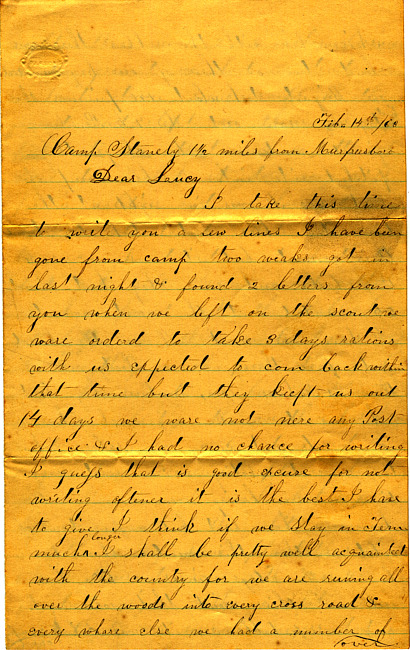 Feb. 14th /63
Camp Stanely 1½ miles from Murfreesboro
Dear Loucy
I take this time
to write you a few lines I have been
gone from camp two weaks got in
last night & found 2 letters from
you when we left on the scout we
ware orderd to take 3 days rations
with us expected to com back within
that time but they keept us out
14 days we ware not nere any Post
office & I had no chance for writing
I guess that is good excuse for not
writing oftener it is the best I have
to give I think if we stay in Tenn
much longer I shall be pretty well acquainted
with the country for we are runing all
over the woods into every cross road &
every whare else we had a number of
over